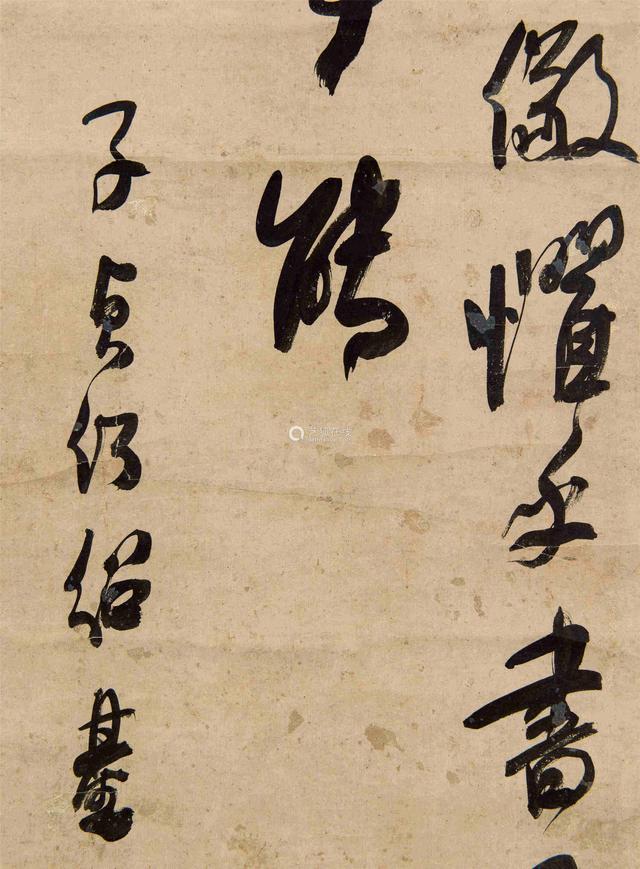 儆惧乎書
能
子貞何紹基